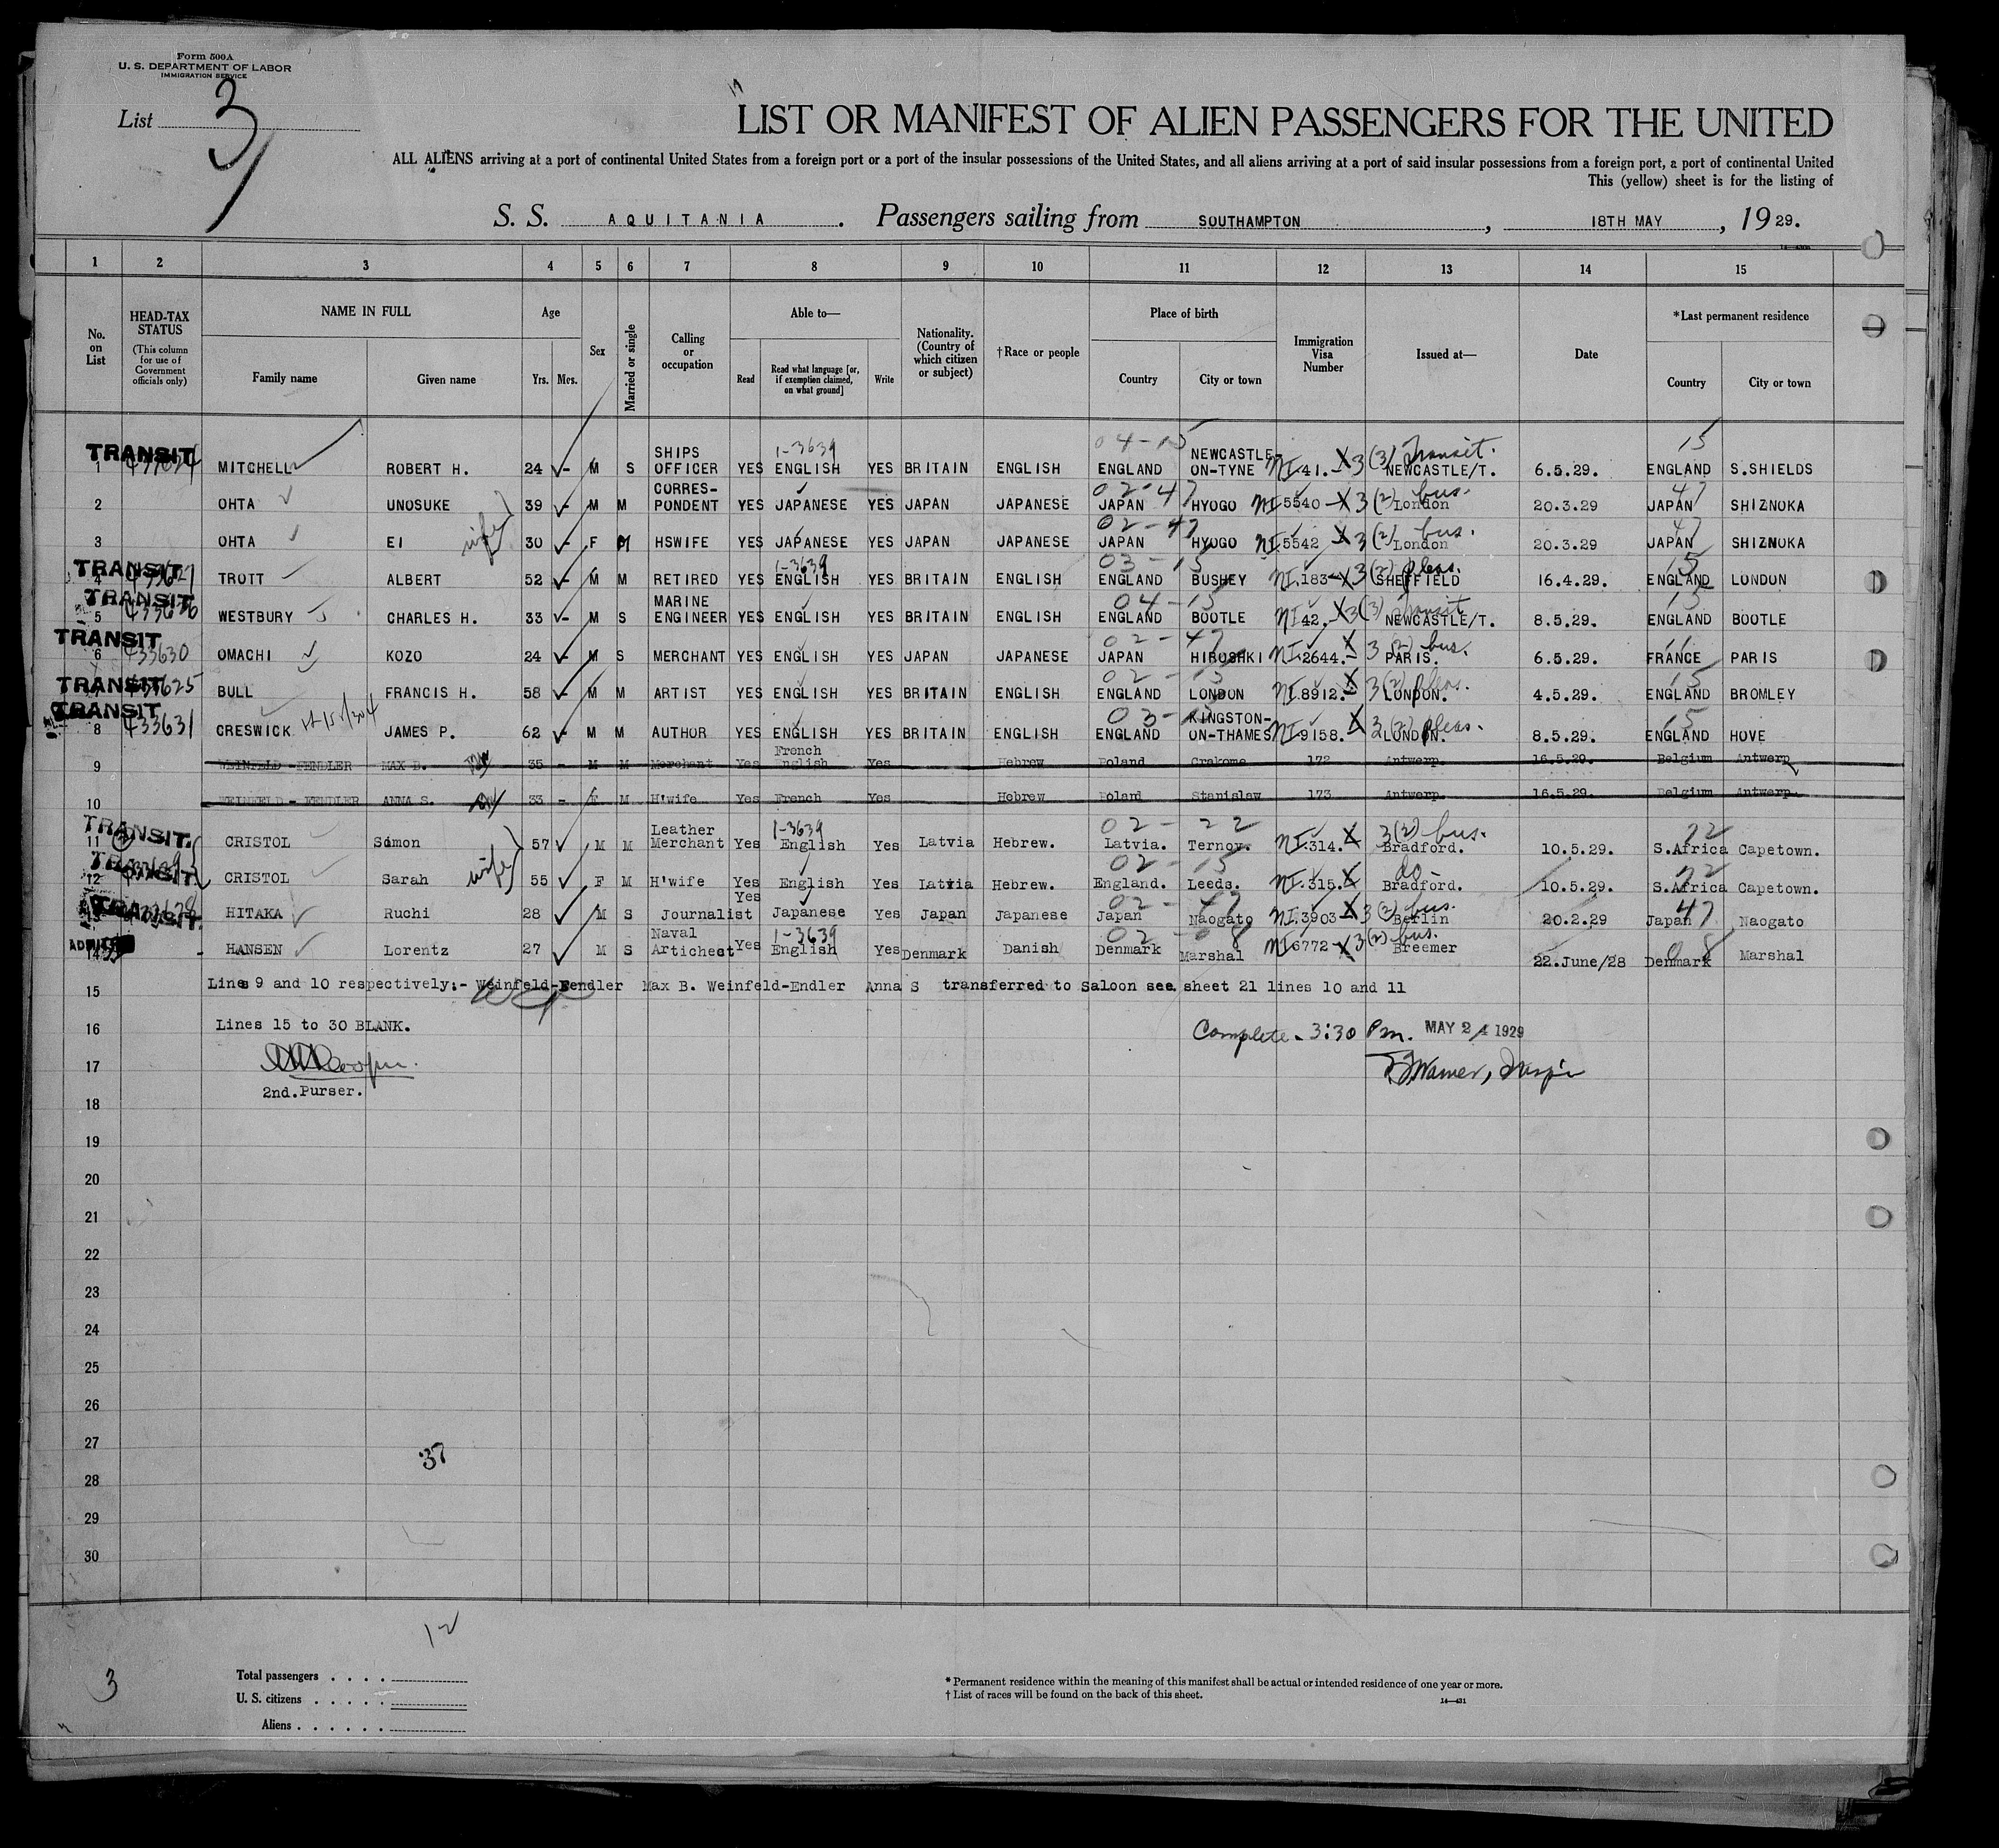 Form 500A
U. S. DEPARTMENT OF LABOR
IMMIGRATION SERVICE
List 3
LIST OR MANIFEST OF ALIEN PASSENGERS FOR THE UNITED
ALL ALIENS arriving at a port of continental United States from a foreign port or a port of the insular possessions of the United States, and all aliens arriving at a port of said insular possessions from a foreign port, a port of continental United
This (yellow) sheet is for the listing of
S. S. AQUITANIA. Passengers sailing from SOUTHAMPTON, 18TH MAY, 1929.
1 2 3 4 5 6 7 8 9 10 11 12 13 14 15
No. on List
HEAD-TAX STATUS (This column for use of Government officials only)
NAME IN FULL
Family name Given name
Age
Yrs. Mos.
Sex
Married or single
Calling or occupation
Able to—
Read Read what language [or, if exemption claimed, on what ground] Write
Nationality. (Country of which citizen or subject)
†Race or people
Place of birth
Country City or town
Immigration Visa Number
Issued at—
Date
*Last permanent residence
Country City or town
TRANSIT 1 MITCHELL ROBERT H. 24 - M S SHIPS OFFICER YES 1-3639 ENGLISH YES BRITAIN ENGLISH 04-15 ENGLAND NEWCASTLE-ON-TYNE NI 41. X 3(3) Transit. NEWCASTLE/T. 6.5.29. 15 ENGLAND S.SHIELDS
2 OHTA UNOSUKE 39 - M M CORRES-PONDENT YES JAPANESE YES JAPAN JAPANESE 02-47 JAPAN HYOGO NI 5540 X 3(2) bus. London 20.3.29 47 JAPAN SHIZNOKA
3 OHTA EI wife 30 - F M HSWIFE YES JAPANESE YES JAPAN JAPANESE 02-47 JAPAN HYOGO NI 5542 X 3(2) bus. London 20.3.29 47 JAPAN SHIZNOKA
TRANSIT 4 TROTT ALBERT 52 - M M RETIRED YES 1-3639 ENGLISH YES BRITAIN ENGLISH 03-15 ENGLAND BUSHEY NI 183 X 3(2) pleas. SHEFFIELD 16.4.29. 15 ENGLAND LONDON
TRANSIT 5 433626 WESTBURY CHARLES H. 33 - M S MARINE ENGINEER YES ENGLISH YES BRITAIN ENGLISH 04-15 ENGLAND BOOTLE NI 42. X 3(3) Transit NEWCASTLE/T. 8.5.29. 15 ENGLAND BOOTLE
TRANSIT 6 433630 OMACHI KOZO 24 - M S MERCHANT YES ENGLISH YES JAPAN JAPANESE 02-47 JAPAN HIROSHKI NI 2644. X 3(2) bus. PARIS. 6.5.29. 11 FRANCE PARIS
TRANSIT 7 433625 BULL FRANCIS H. 58 - M M ARTIST YES ENGLISH YES BRITAIN ENGLISH 02-15 ENGLAND LONDON NI 8912. X 3(2) pleas. LONDON. 4.5.29. 15 ENGLAND BROMLEY
TRANSIT 8 433631 CRESWICK JAMES P. 62 - M M AUTHOR YES ENGLISH YES BRITAIN ENGLISH 03-15 ENGLAND KINGSTON-ON-THAMES NI 9158. X 3(2) pleas. LONDON. 8.5.29. 15 ENGLAND HOVE
9 WEINFELD-FENDLER MAX B. 35 - M M Merchant Yes French English Yes Hebrew Poland Crakome 172 Antwerp 16.5.29. Belgium Antwerp
10 WEINFELD - FENDLER ANNA S. 33 - F M H'wife Yes French Yes Hebrew Poland Stanislaw 173 Antwerp. 16.5.29. Belgium Antwerp.
TRANSIT. 11 CRISTOL Simon 57 M M Leather Merchant Yes 1-3639 English Yes Latvia Hebrew. 02-22 Latvia. Ternov. NI 314. X 3(2) bus. Bradford. 10.5.29. 72 S.Africa Capetown.
TRANSIT. 12 CRISTOL Sarah wife 55 F M H'wife Yes English Yes Latvia Hebrew. 02-15 England. Leeds. NI 315. X do- Bradford. 10.5.29. 72 S.Africa Capetown.
TRANSIT. 13 HITAKA Ruchi 28 M S Journalist Yes Japanese Yes Japan Japanese 02-47 Japan Naogato NI 3903 X 3(2) bus. Berlin 20.2.29 Japan 47 Naogato
ADMITTED 14 HANSEN Lorentz 27 M S Naval Artichect Yes 1-3639 English Yes Denmark Danish 02-08 Denmark Marshal NI 6772 X 3(2) bus. Breemer 22.June/28 08 Denmark Marshal
15 Lines 9 and 10 respectively:- Weinfeld-Fendler Max B. Weinfeld-Endler Anna S transferred to Saloon see sheet 21 lines 10 and 11
16 Lines 15 to 30 BLANK. Complete - 3:30 Pm. MAY 24 1929
17 Warner, Insp'r
2nd.Purser.
18
19
20
21
22
23
24
25
26
27 37
28
29
30
12
3
Total passengers . . . .
U. S. citizens . . . . .
Aliens . . . . . .
* Permanent residence within the meaning of this manifest shall be actual or intended residence of one year or more.
† List of races will be found on the back of this sheet.
14—431